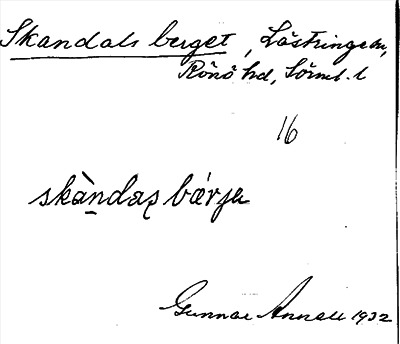 Skandals berget, Lästringe sn,
Rönö hd, Sörml. l
16
skàndas bǽrjə
Gunnar Annell 1932